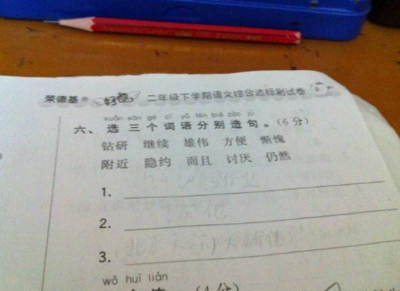 荣德基 好卷 二年级下学期语文综合达标测试卷
xuǎn sān gè cí yǔ fēn bié zào jù
六、选三个词语分别造句。(6分)
钻研 继续 雄伟 方便 惭愧
附近 隐约 而且 讨厌 仍然
1.
2.
3.
wǒ huì liàn